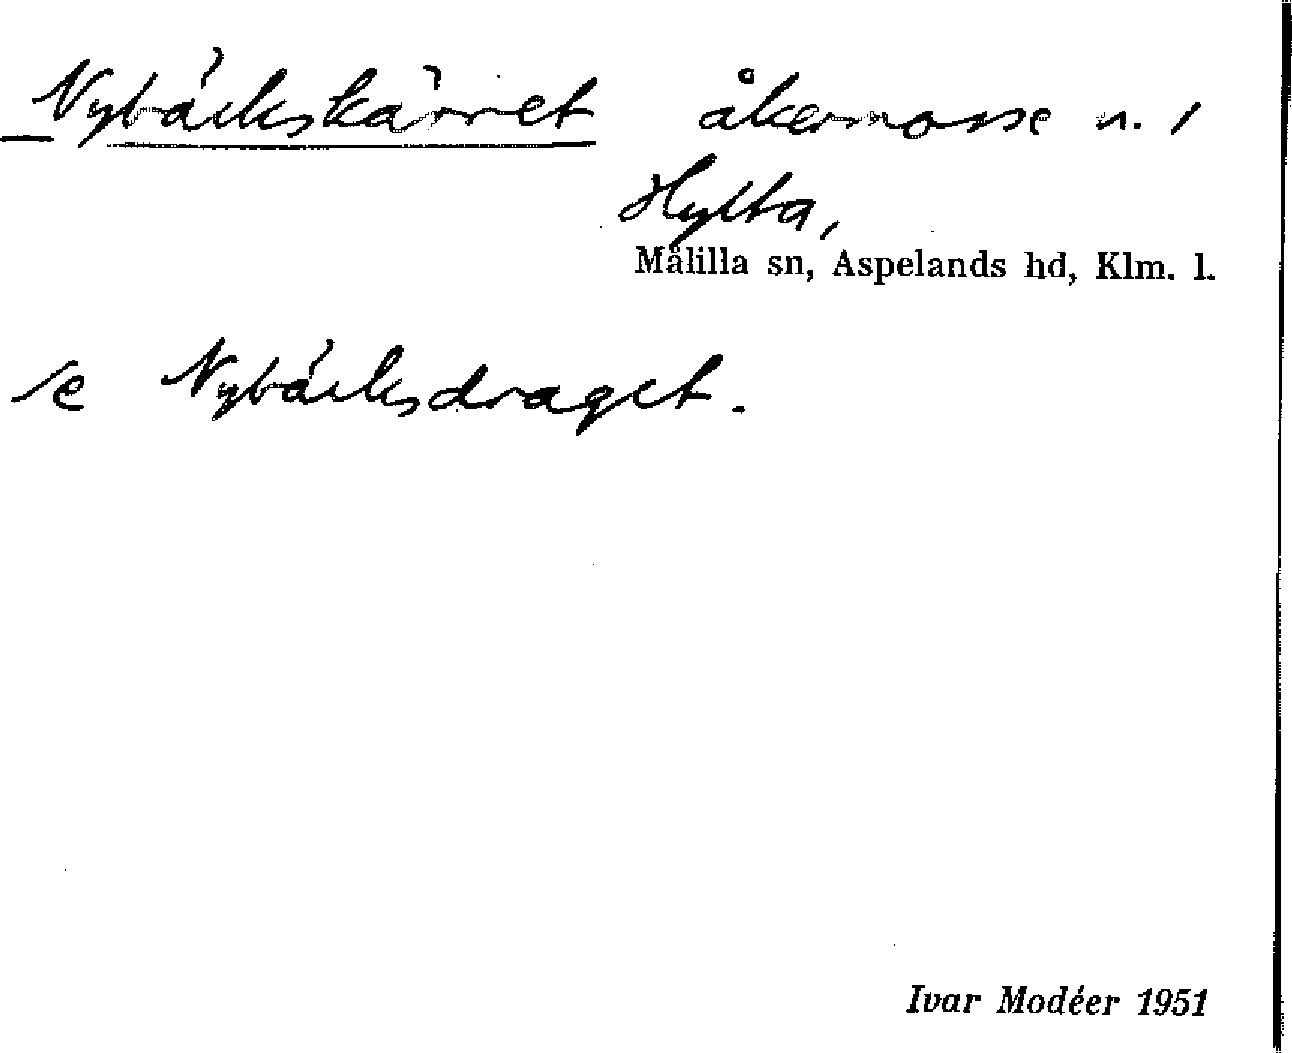 Nybäckskärret åkermosse n. 1
Hylta,
Målilla sn, Aspelands hd, Klm. l.
se Nybäcksdraget.
Ivar Modéer 1951